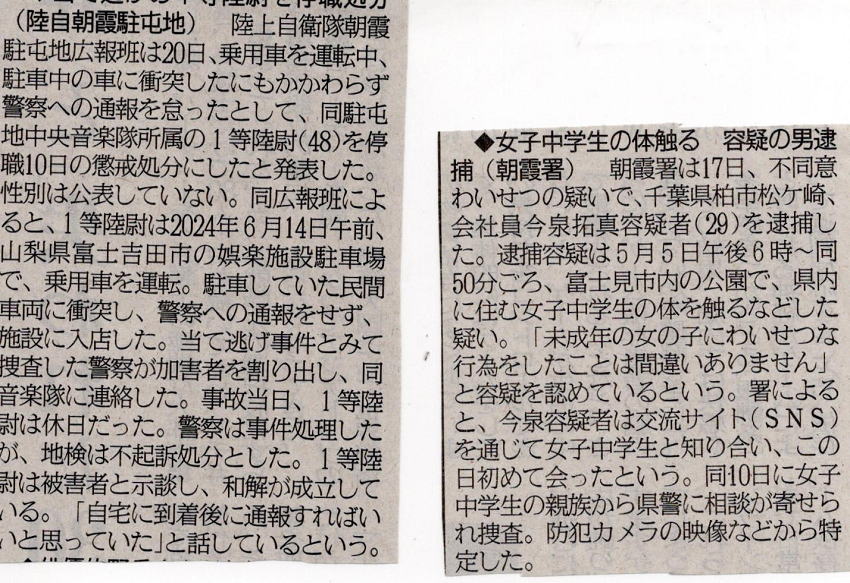 １等陸尉を停職処分
（陸自朝霞駐屯地）　陸上自衛隊朝霞
駐屯地広報班は20日、乗用車を運転中、
駐車中の車に衝突したにもかかわらず
警察への通報を怠ったとして、同駐屯
地中央音楽隊所属の１等陸尉(48)を停
職10日の懲戒処分にしたと発表した。
性別は公表していない。同広報班によ
ると、１等陸尉は2024年６月14日午前、
山梨県富士吉田市の娯楽施設駐車場
で、乗用車を運転。駐車していた民間
車両に衝突し、警察への通報をせず、
施設に入店した。当て逃げ事件とみて
捜査した警察が加害者を割り出し、同
音楽隊に連絡した。事故当日、１等陸
尉は休日だった。警察は事件処理した
が、地検は不起訴処分とした。１等陸
尉は被害者と示談し、和解が成立して
いる。「自宅に到着後に通報すればい
いと思っていた」と話しているという。
◆女子中学生の体触る　容疑の男逮
捕（朝霞署）　朝霞署は17日、不同意
わいせつの疑いで、千葉県柏市松ケ崎、
会社員今泉拓真容疑者(29)を逮捕し
た。逮捕容疑は５月５日午後６時～同
50分ごろ、富士見市内の公園で、県内
に住む女子中学生の体を触るなどした
疑い。「未成年の女の子にわいせつな
行為をしたことは間違いありません」
と容疑を認めているという。署による
と、今泉容疑者は交流サイト(ＳＮＳ)
を通じて女子中学生と知り合い、この
日初めて会ったという。同10日に女子
中学生の親族から県警に相談が寄せら
れ捜査。防犯カメラの映像などから特
定した。